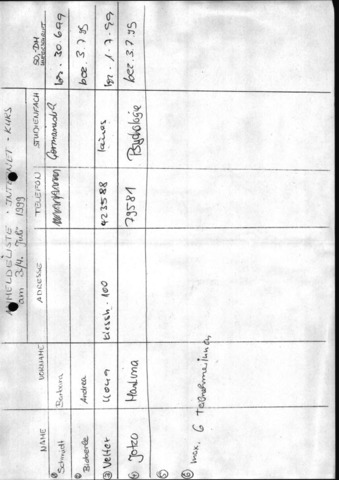 ANMELDELISTE - INTERNET - KURS
am 3/4. Juli 1999
NAME VORNAME ADRESSE TELEFON STUDIENFACH 50,-DM
① Schmidt Barbara Germanistik bez. 30.6.99
② Andrea bez. 3.7.99
③ Vetter Kirschh. 100 423588 keines bez. 1.7.99
④ Jotzo Martina 79581 Psychologie bez. 3.7.99
⑤
⑥ max. 6 Teilnehmerinnen